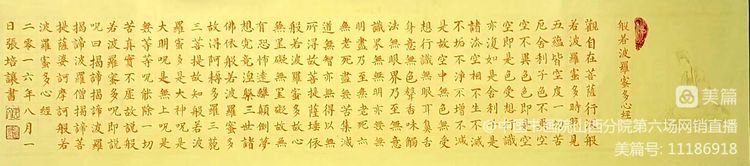 般若波羅蜜多心經
觀自在菩薩行深般
若波羅蜜多時照見
五蘊皆空度一切苦
厄舍利子色不異空
空不異色色即是空
空即是色受想行識
亦復如是舍利子是
諸法空相不生不滅
不垢不淨不增不減
是故空中無色無受
想行識無眼耳鼻舌
身意無色聲香味觸
法無眼界乃至無意
識界無無明亦無無
明盡乃至無老死亦
無老死盡無苦集滅
道無智亦無得以無
所得故菩提薩埵依
般若波羅蜜多故心
無罣礙無罣礙故無
有恐怖遠離顛倒夢
想究竟涅槃三世諸
佛依般若波羅蜜多
故得阿耨多羅三藐
三菩提故知般若波
羅蜜多是大神呪是
大明呪是無上呪是
無等等呪能除一切
苦真實不虛故說般
若波羅蜜多呪即說
呪曰揭諦揭諦波羅
揭諦波羅僧揭諦菩
提薩婆訶摩訶般若
波羅蜜多心經
二零一六年八月一
日張培讓書
美篇
©中国书画院山西分院第六场网销直播
美篇号: 11186918